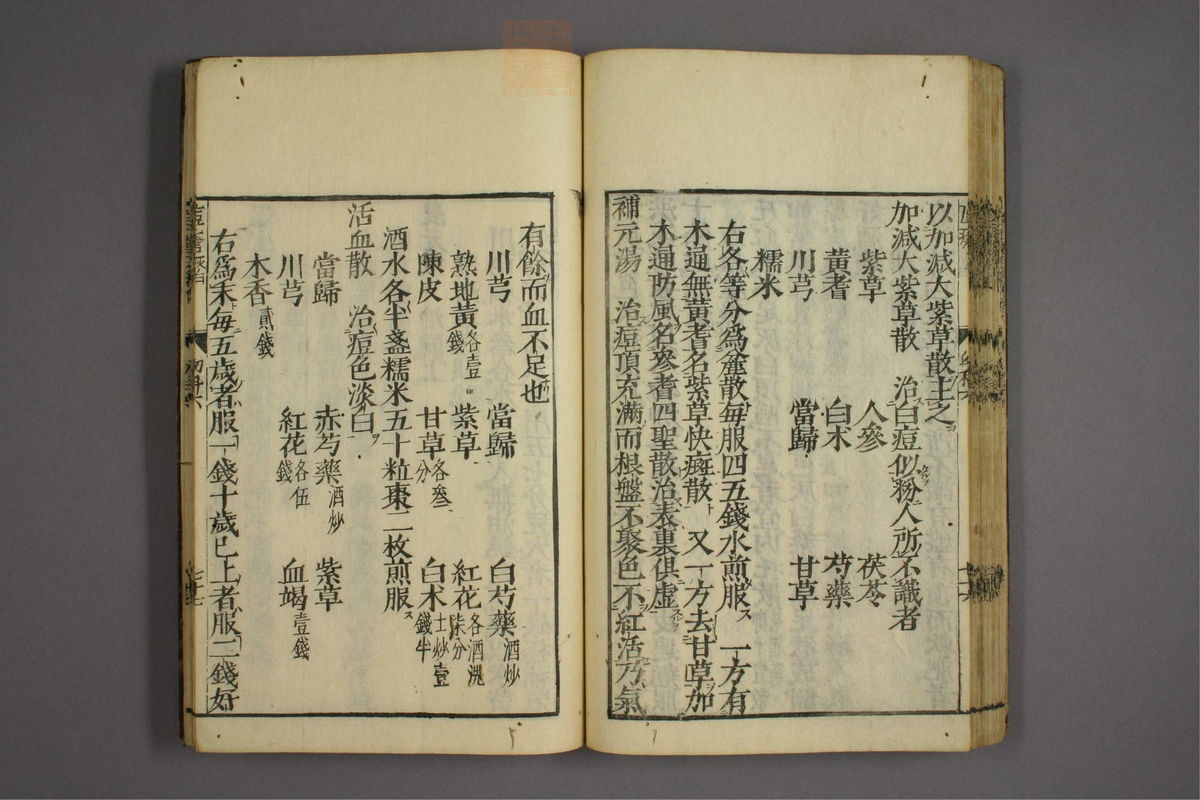 以加減大紫草散主之
加減大紫草散 治白痘似粉人所不識者
紫草 人參 茯苓
黃耆 白朮 芍藥
川芎 當歸 甘草
糯米
右各等分爲麄散每服四五錢水煎服 一方有
木通無黃耆名紫草快癍散 又一方去甘草加
木通防風名參耆四聖散治表裏俱虛
補元湯 治痘頂充滿而根盤不聚色不紅活乃氣
有餘而血不足也
川芎 當歸 白芍藥酒炒
熟地黃各壹錢 紫草 紅花各酒洗柒分
陳皮 甘草各叁分 白朮土炒壹錢半
酒水各半盞糯米五十粒棗二枚煎服
活血散 治痘色淡白
當歸 赤芍藥酒炒 紫草
川芎 紅花各伍錢 血竭壹錢
木香貳錢
右爲末每五歲者服一錢十歲已上者服二錢好